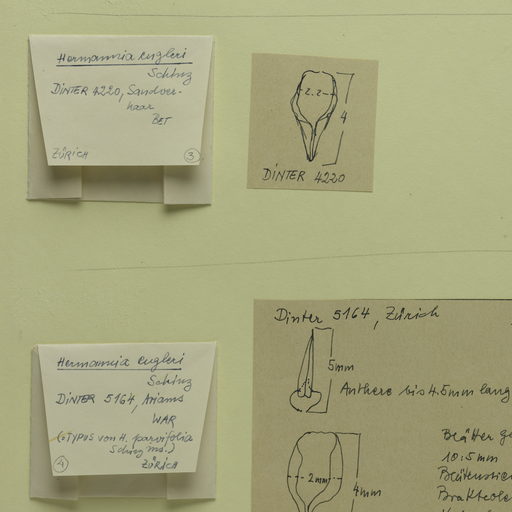 Hermannia engleri
Schinz
DINTER 4220, Sandver-
haar
BET
ZÜRICH 3
2.2
4
DINTER 4220
Hermannia engleri
Schinz
DINTER 5164, Ariams
WAR
(=TYPUS von H. parvifolia
Schinz ms.)
ZÜRICH
4
Dinter 5164, Zürich
5mm
Anthere bis 4.5mm lang
Blätter
10:5 mm
2mm
4mm